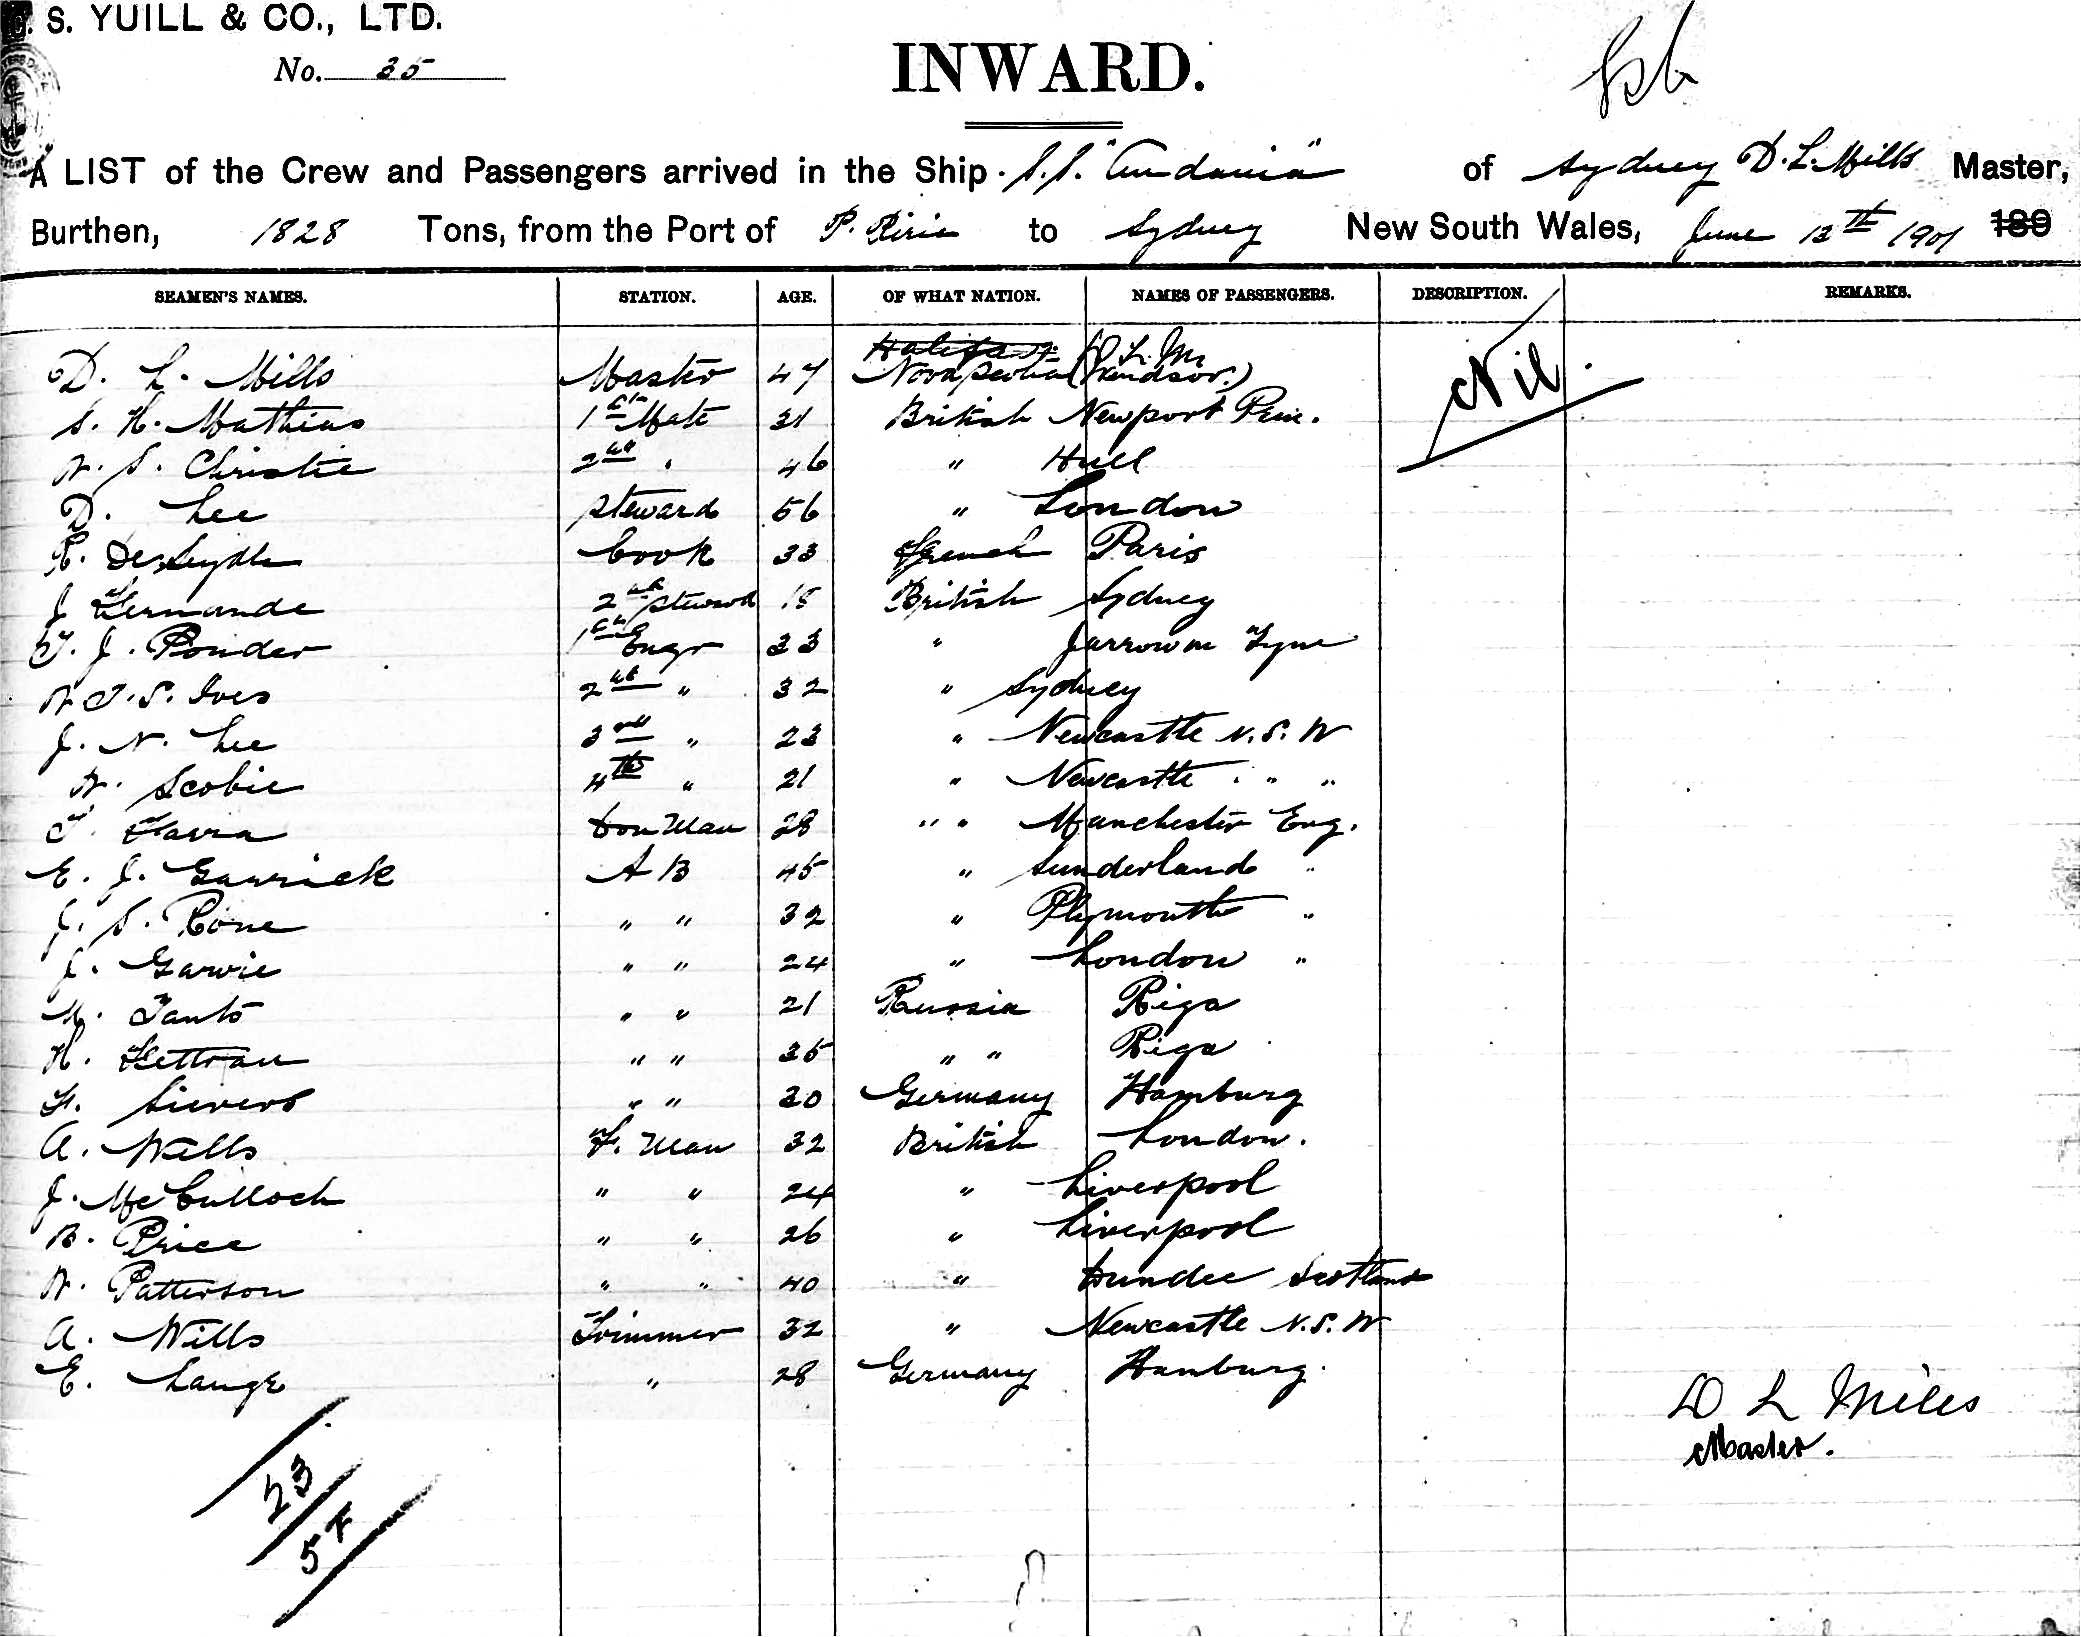 . S. YUILL & CO., LTD.
No. 35
INWARD.
A LIST of the Crew and Passengers arrived in the Ship S.S. "Andania" of Sydney D. L. Mills Master,
Burthen, 1828 Tons, from the Port of P. Pirie to Sydney New South Wales, June 12th 1901 189
SEAMEN'S NAMES. STATION. AGE. OF WHAT NATION. NAMES OF PASSENGERS. DESCRIPTION. REMARKS.
Halifax D L M
D. L. Mills Master 47 Nova Scotia (Windsor.) Nil.
S. H. Mathias 1st Mate 31 British Newport Pem.
W. S. Christie 2nd " 46 " Hull
D. Lee Steward 56 " London
R. Cook 33 French Paris
J. 2nd Steward 18 British Sydney
T. J. Ponder 1st Engr 33 " Jarrow on Tyne
W T. S. Ives 2nd " 32 " Sydney
J. N. Lee 3rd " 23 " Newcastle N. S. W
W. Scobie 4th " 21 " Newcastle " " "
T. Don Man 28 " " Manchester Eng.
E. J. Garrick A B 45 " Sunderland "
J. S. Rone " " 32 " Plymouth "
J. Garvie " " 24 " London "
M. " " 21 Russia Riga
H. " " 35 " " Riga
F. Sievers " " 30 Germany Hamburg
A. Wills F. Man 32 British London.
J. McCulloch " " 24 " Liverpool
B. Price " " 26 " Liverpool
W. Patterson " " 40 " Dundee Scotland
A. Wills Trimmer 32 " Newcastle N. S. W
E. Lange " 28 Germany Hamburg.
D L Mills
Master.
23
57